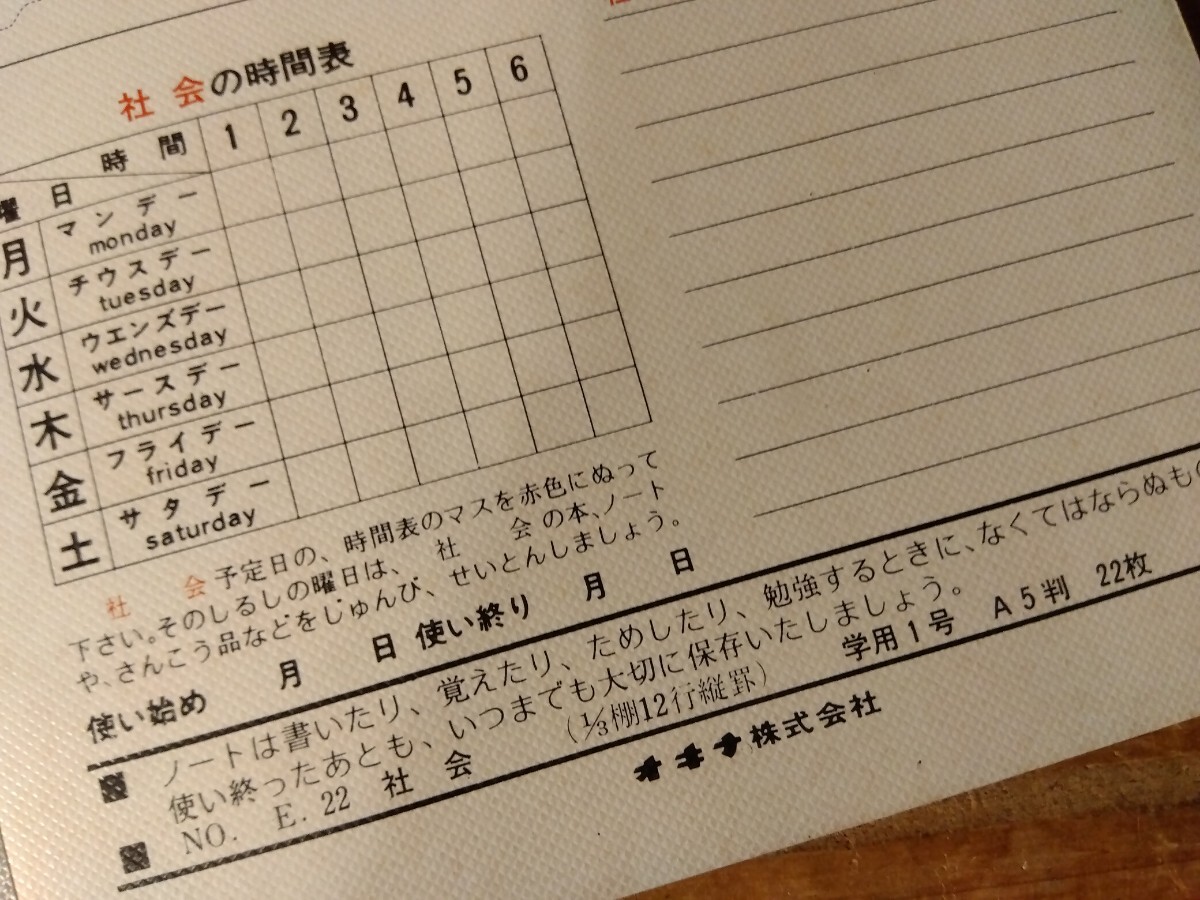 社会の時間表
時間 1 2 3 4 5 6
曜日
月 マンデー
monday
火 チウスデー
tuesday
水 ウエンズデー
wednesday
木 サースデー
thursday
金 フライデー
friday
土 サタデー
saturday
社会予定日の、時間表のマスを赤色にぬって
下さい。そのしるしの曜日は、社会の本、ノート
や、さんこう品などをじゅんび、せいとんしましょう。
使い始め 月 日 使い終り 月 日
ノートは書いたり、覚えたり、ためしたり、勉強するときに、なくてはならぬもの
使い終ったあとも、いつまでも大切に保存いたしましょう。
NO. E. 22 社会 (⅓棚12行縦罫) 学用1号 A5判 22枚
オキナ株式会社